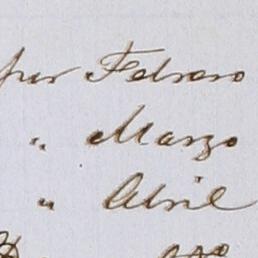 por Febrero
" Marzo
" Abril